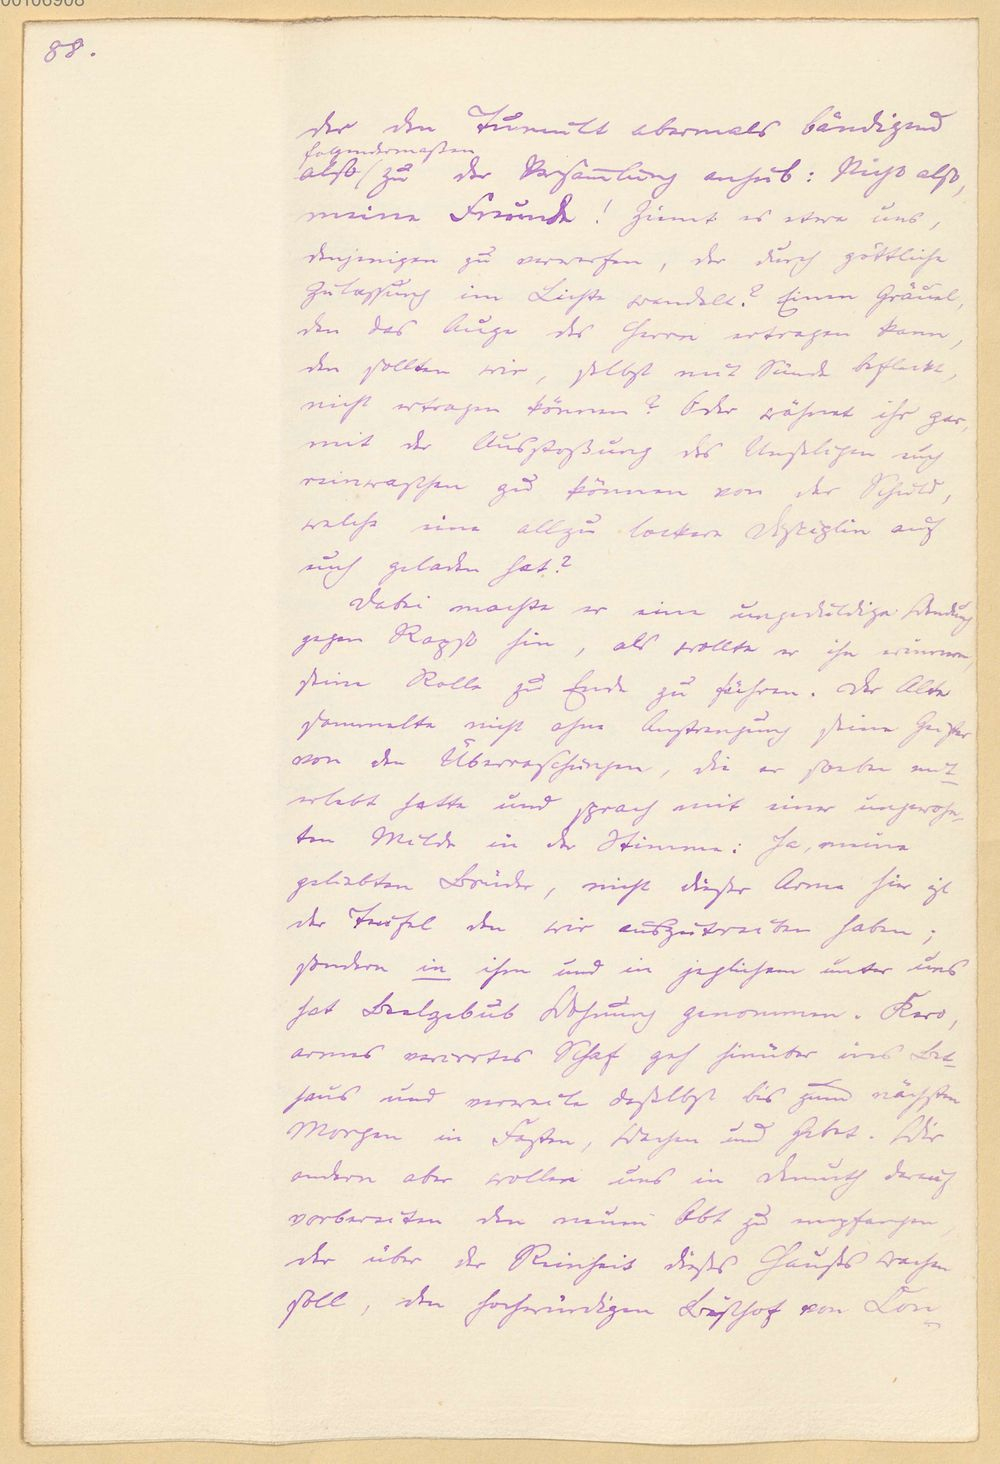 00106908
88.
der den Tumult abermals bändigend
folgendermaßen
also / zu der Versammlung anhub: Nicht also,
meine Freunde! Ziemt es etwa uns,
denjenigen zu verwerfen, der durch göttliche
Zulassung im Lichte wandelt? Einen Gräuel,
den das Auge des Herrn ertragen kann,
den sollten wir, selbst mit Sünde befleckt,
nicht ertragen können? Oder wähnet ihr gar,
mit der Ausstoßung des Unseligen euch
reinwaschen zu können von der Schuld,
welche eine allzu lockere Disciplin auf
euch geladen hat?
Dabei machte er eine ungeduldige Wendung
gegen Ratpot hin, als wollte er ihn erinnern,
seine Rolle zu Ende zu führen. Der Alte
sammelte nicht ohne Anstrengung seine Geister
von den Überraschungen, die er soeben mit-
erlebt hatte und sprach mit einer ungewohn-
ten Milde in der Stimme: Ja, meine
geliebten Brüder, nicht dieser Arme hier ist
der Teufel den wir auszutreiben haben;
sondern in ihm und in jeglichem unter uns
hat Beelzebub Wohnung genommen. Kero,
armes verirrtes Schaf geh hinüber ins Bet-
haus und verweile daselbst bis zum nächsten
Morgen in Fasten, Wachen und Gebet. Wir
andern aber wollen uns in Demuth darauf
vorbereiten den neuen Abt zu empfangen,
der über der Reinheit dieses Hauses wachen
soll, den hochwürdigen Bischof von Con-